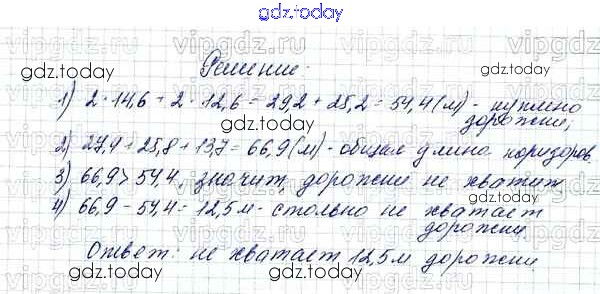 gdz.today
Решение.
1) 2·14,6 + 2·12,6 = 29,2 + 25,2 = 54,4 (м) - куплено
дорожки;
2) 27,4 + 25,8 + 13,7 = 66,9 (м) - общая длина коридоров
3) 66,9 > 54,4, значит, дорожки не хватит
4) 66,9 - 54,4 = 12,5 м - столько не хватает
дорожки.
Ответ: не хватает 12,5 м дорожки
gdz.today
gdz.today
gdz.today
gdz.today
gdz.today
gdz.today
gdz.today
gdz.today